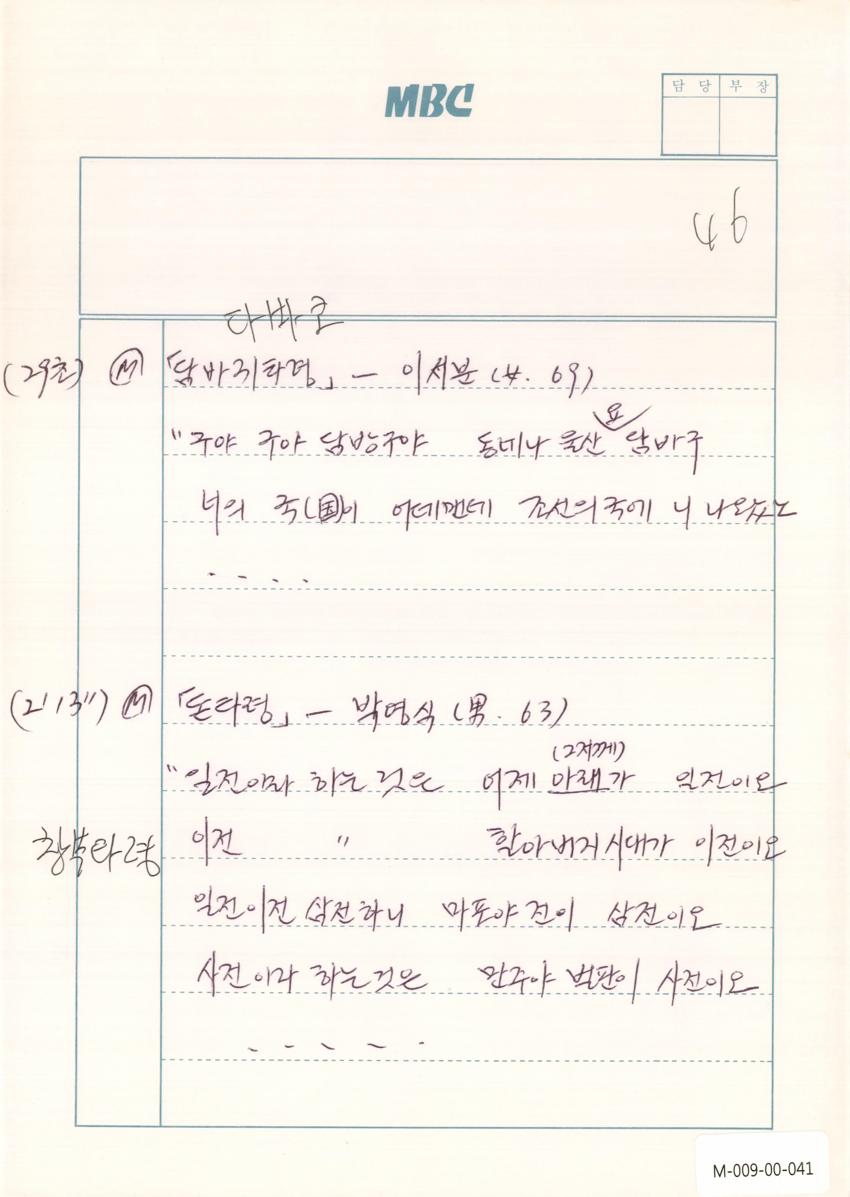 MBC
담 당 부 장
46
타바코
(29초) Ⓜ 「담바귀타령」 — 이서분 (女. 69)
요
"구야 구야 담방구야 동네나 울산 담바구
너의 국(国)이 어데멘데 조선의국에 니 나왔노
. . . .
(2'13") Ⓜ 「돈타령」 — 박영식 (男. 63)
(그저께)
"일전이라 하는 것은 어제 아래가 일전이오
이전 " 할아버지시대가 이전이오
창부타령
일전이전 삼전하니 마포야 전이 삼전이오
사전이라 하는것은 만주야 벌판이 사전이오
. . . . .
M-009-00-041